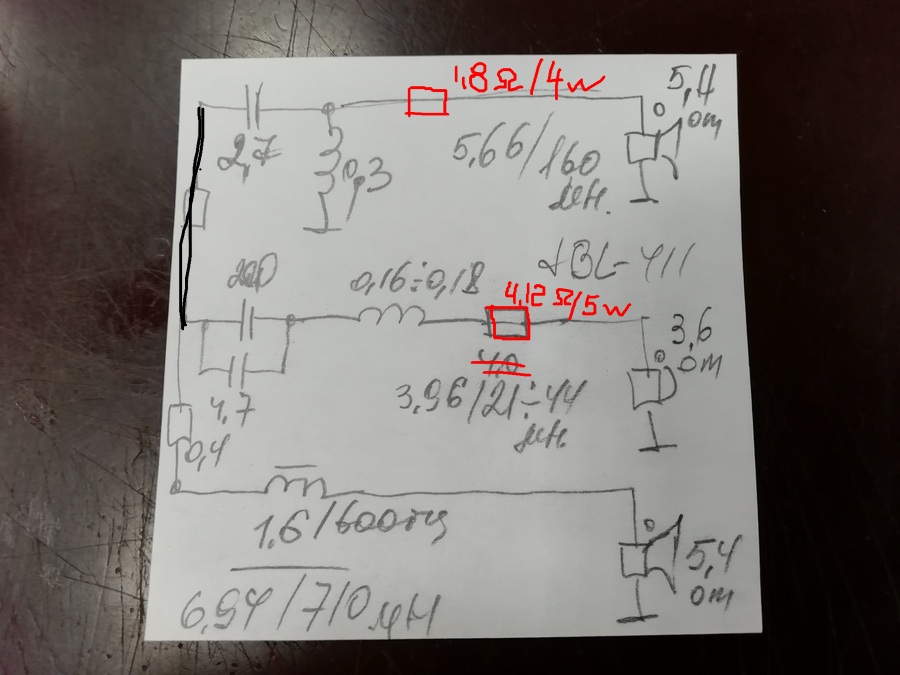 1,8 Ω/4w
5,4
ом
2,7
0,3
5,66/160
мн.
220
0,16÷0,18
JBL-411
4,12 Ω/5w
4,0
3,6
ом
4,7
3,96/21÷44
мн.
0,4
1,6/600гц
5,4
ом
6,94/710 мН